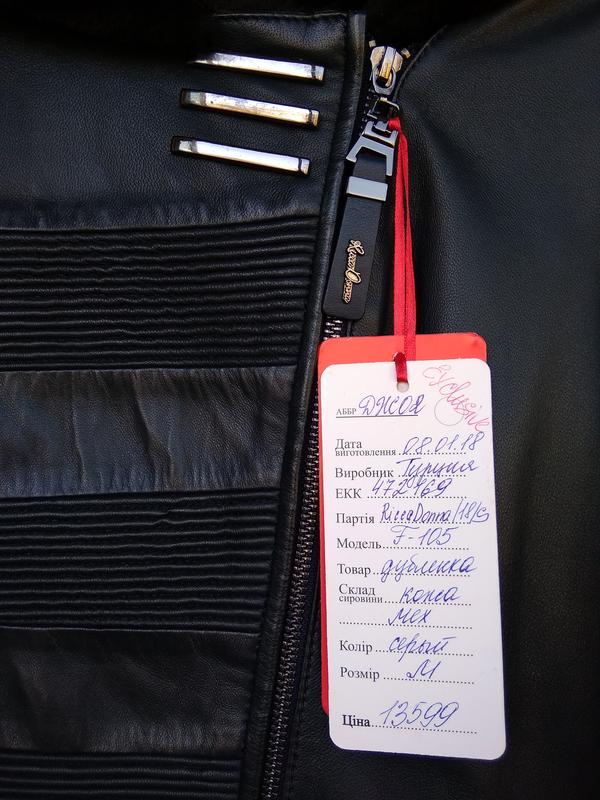 Exclusive
АББР ДЖОЯ
Дата
виготовлення 08.01.18
Виробник Турция
ЕКК 472469
Партія RiccaDonna/18/
Модель F-105
Товар дубленка
Склад
сировини кожа
мех
Колір серый
Розмір М
Ціна 13599